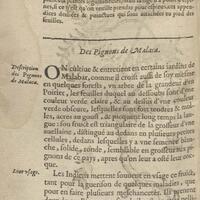 pen, il c'est qu'on veuille prendre pour
dices denisez & punctus qui sont attachées au pied des
feuilles.
Des Pignons de Malaca.
Description
des Pignons
de Malaca.
ON cultive & entretient en certains jardins de
Malabar, comme il croist aussi de soy mesme
en quelques forests, un arbre de la grandeur d'un
Poirier, les feuilles duquel au dessous sont d'une
couleur verde claire, & au dessus d'une couleur
verde obscure, tendres & molles, lesquelles si
on les gouste piquent par un long temps la lan-
gue: son fruict est triangulaire de la grosseur d'une
auellaine, distingué au dedans en plusieurs petites
cellules, dedans lesquelles y a une semence blan-
che, solide, ronde, semblable en grosseur aux pi-
gnons de ce pays, apres qu'on leur a osté leur coc-
que.
Leur usage.
Les Indiens mettent souvent en usage ce fruict,
tant pour la guerison de quelques maladies, que
pour en faire plusieurs meschancetez. Ils prennent